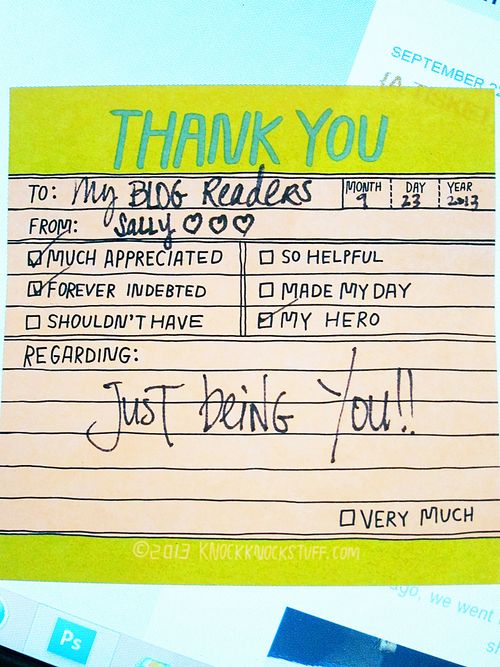 SEPTEMBER 2
THANK YOU
TO: My BLOG Readers MONTH 9 DAY 23 YEAR 2013
FROM: Sally
MUCH APPRECIATED SO HELPFUL
FOREVER INDEBTED MADE MY DAY
SHOULDN'T HAVE MY HERO
REGARDING:
Just being You!!
VERY MUCH
©2013 KNOCKKNOCKSTUFF.COM
ago, we went
Ps